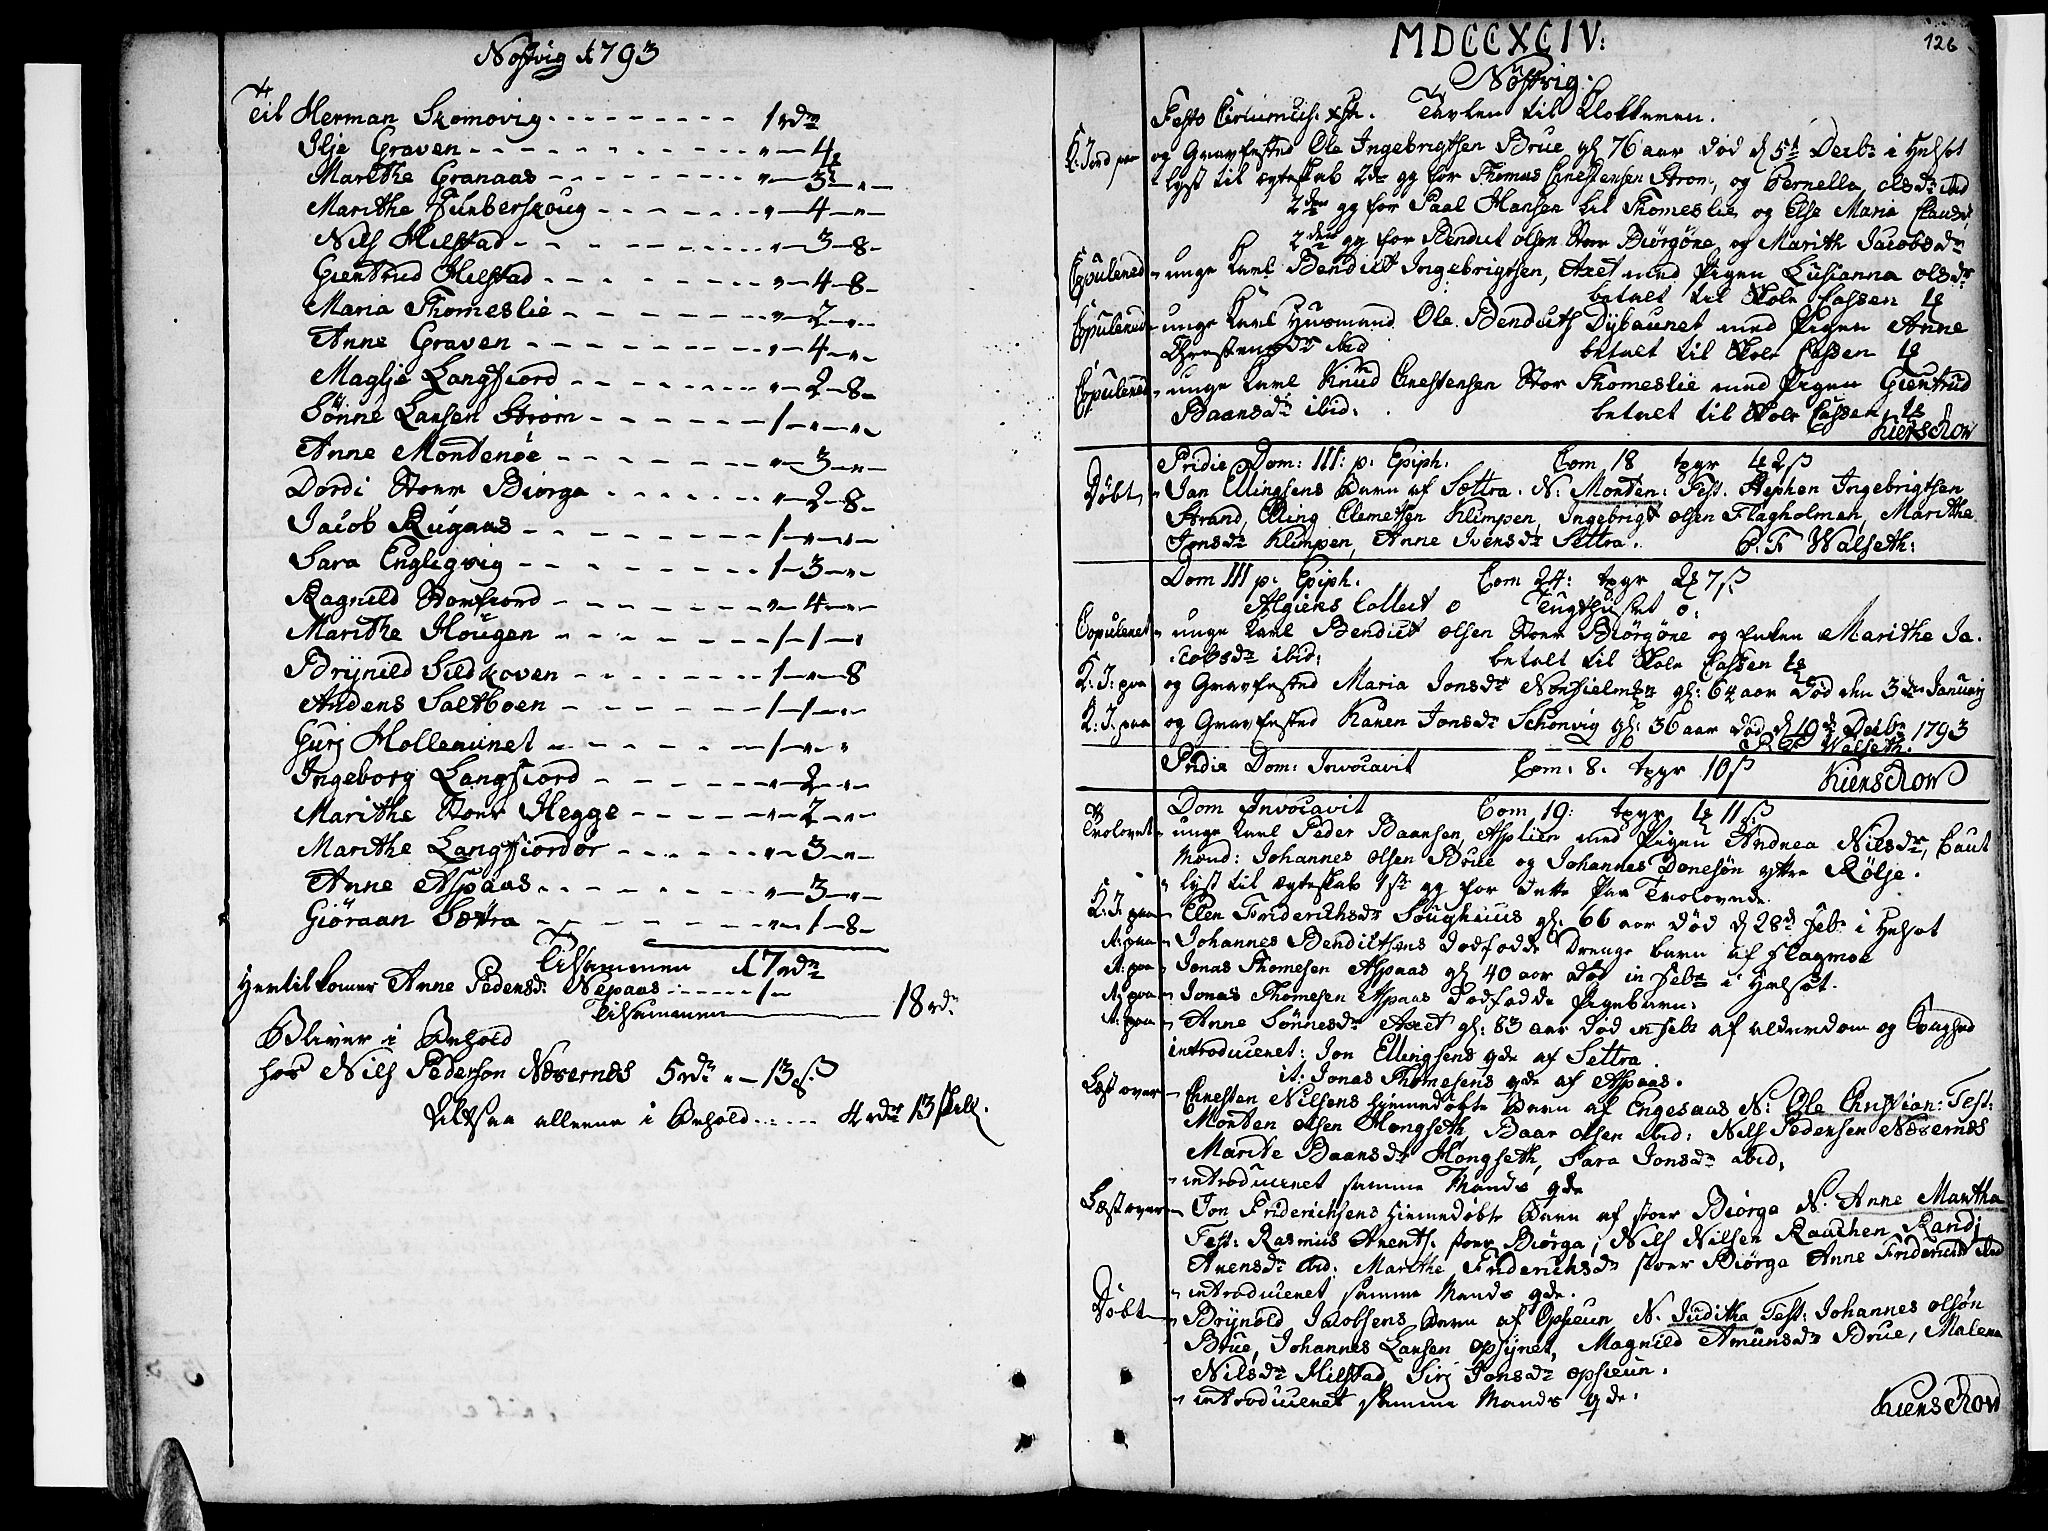 Nøstvig 1793
Til Herman Skomovig - - - 1 rdr
Ilje Graven - - - " — 4
Marithe Granaas - - - " — 3 — "
Marithe Furberskoug - - - " — 4 — "
Nils Hilstad - - - " — 3 — 8
Giertrud Hilstad - - - " — 4 — 8
Maria Thomeslie - - - " — 2 — "
Anne Graven - - - " — 4 — "
Maglje Langfiord - - - " — 2 — 8
Sønne Larsen Strøm - - - 1 — " — "
Anne Mordenøe - - - " — 3 — "
Dordi Stoer Biørga - - - " — 2 — 8
Jacob Rugaas - - - 1 — " — "
Sara Engligvig - - - 1 — 3 — "
Ragnild Storfiord - - - " — 4 — "
Marithe Hougen - - - 1 — 1 — "
Brynild Sildkoven - - - 1 — " — 8
Anders Saltboen - - - 1 — 1 — "
Gurj Mollerünet - - - 1 — " — "
Ingeborg Langfiord - - - " — 2 — "
Marithe Stoer Hegge - - - " — 2 — "
Marithe Langfiordør - - - " — 3 — "
Anne Aspaas - - - " — 3 — "
Giøraan Sættra - - - " — 1 — 8
Tilsammen 17 rdr
Hertil komer Anne Pedersdr Nepaas - - - 1 —
Tilsammen 18 rdr
Bliver i Behold
hos Nils Pederson Næsernes 5 rdr " — 13 ß
Altsaa alleene i Behold - - - 4 rdr 13 skill.
MDCCXCIV:
126
Nöstvig.
Festo Circumcis: xsti. Tavlen til Klokkeren.
K: Jord paa og Gravfested Ole Ingebrigtsen Brue gl: 76 aar død d 5te Decbr i Helsot
lyst til ægteskab 2de gg for Thomas Christensen Strøm, og Pernella Olsdr ibid
2den gg for Paal Hansen lil Thomeslie og Else Maria Clausdr
2den gg for Bendict olsen Stoer Biørgöne og Marith Jacobsdr
Copulered unge Karl Bendict Ingebrigtsen, Axet med Pigen Lusianna olsdr
betalt til Skole Cassen
Copulered unge Karl Husmand Ole Bendicts Dybaunet med Pigen Anne
Christensdr ibid betalt til Skole Cassen
Copulered unge Karl Knud Christensen Stor Thomeslie med Pigen Giertrud
Baarsdr ibid: betalt til Skole Cassen
Kierschow
Pridie Dom: III: p: Epiph. Com 18 1 2 ß
Döbt Jan Ellingsens Barn af Sættra. N: Morten: Test. Stephen Ingebrigtsen
Strand, Elling Clemetsen Klimpen, Ingebrigt olsen Flagholman, Marithe
Jonsdr Klimpen, Anne Iversdr Settra. P: F Walseth:
Dom III p: Epiph. Com 24: 2 7 ß
Algiers Collect 0 Tugthuset 0:
Copuleret unge Karl Bendict olsen Stoer Biørgöne og Enken Marithe Ja-
cobsdr ibid: betalt til Skole Cassen
K: J: paa og Gravfested Maria Jonsdr gl: 64 aar død den 3die January
K: J: paa og Gravfested Karen Jonsdr Schonvig gl: 36 aar død d 19de Decbr 1793
P: F Walseth:
Pridie Dom: Invocavit Com: 8: 10 ß Kierschow
Dom Invocavit Com 19: 1 11 ß
Trolovet unge Karl Peder Baarsen, Asplien med Pigen Andrea Nilsdr, Caut
Mænd: Johannes olsen Brue og Johannes Donesøn yttre Rölje.
lyst til ægteskab 1ste gg for dette Par Trolovede
K: J: paa Elen Friderichsdr Soughuus gl: 66 aar død d 28de Febr i Helsot
J: paa Johannes Bendictsens dødfødde Drenge barn af Flagmoe
J: paa Jonas Thomesen Aspaas gl 40 aar død in Febr i Helsot.
J: paa Jonas Thomesen Aspaas dødfødde Pigebarn:
J: paa Anne Sønnesdr Axet gl: 83 aar død in Febr af alderdom og Svaghed
introduceret: Jon Ellingsens qde af Settra
it: Jonas Thomesens qde af Aspaas.
Læst over Christen Nilsens hjemmedøbte Barn af Engesaas N: Ole Christian: Test:
Morten olsen Hongseth, Baar olsen ibid: Nils Pedersen Næsernes
Marite Baarsdr Hongseth, Sara Jonsdr ibid,
introduceret samme Mands qde
Læst over Jon Friderichsens hiemedøbte Barn af stoer Biørga N. Anne Martha
Test: Rasmus Arents: stoer Biørga, Nils Nilsen Raachen Randj
Arensdr ibid: Marithe Friderichsdr stoer Biørga Anne Friderichsdr ibid
introduceret samme Mands qde.
Döbt Brynild Jacobsens Barn af Opsieun N. Juditha Test: Johannes olsøn
Brue, Johannes Larsen opsynet, Magnild Amunsdr Brue, Malena
Nilsdr Hilstad, Sirj Jonsdr opsieun.
introduceret samme Mands qde:
Kierschow